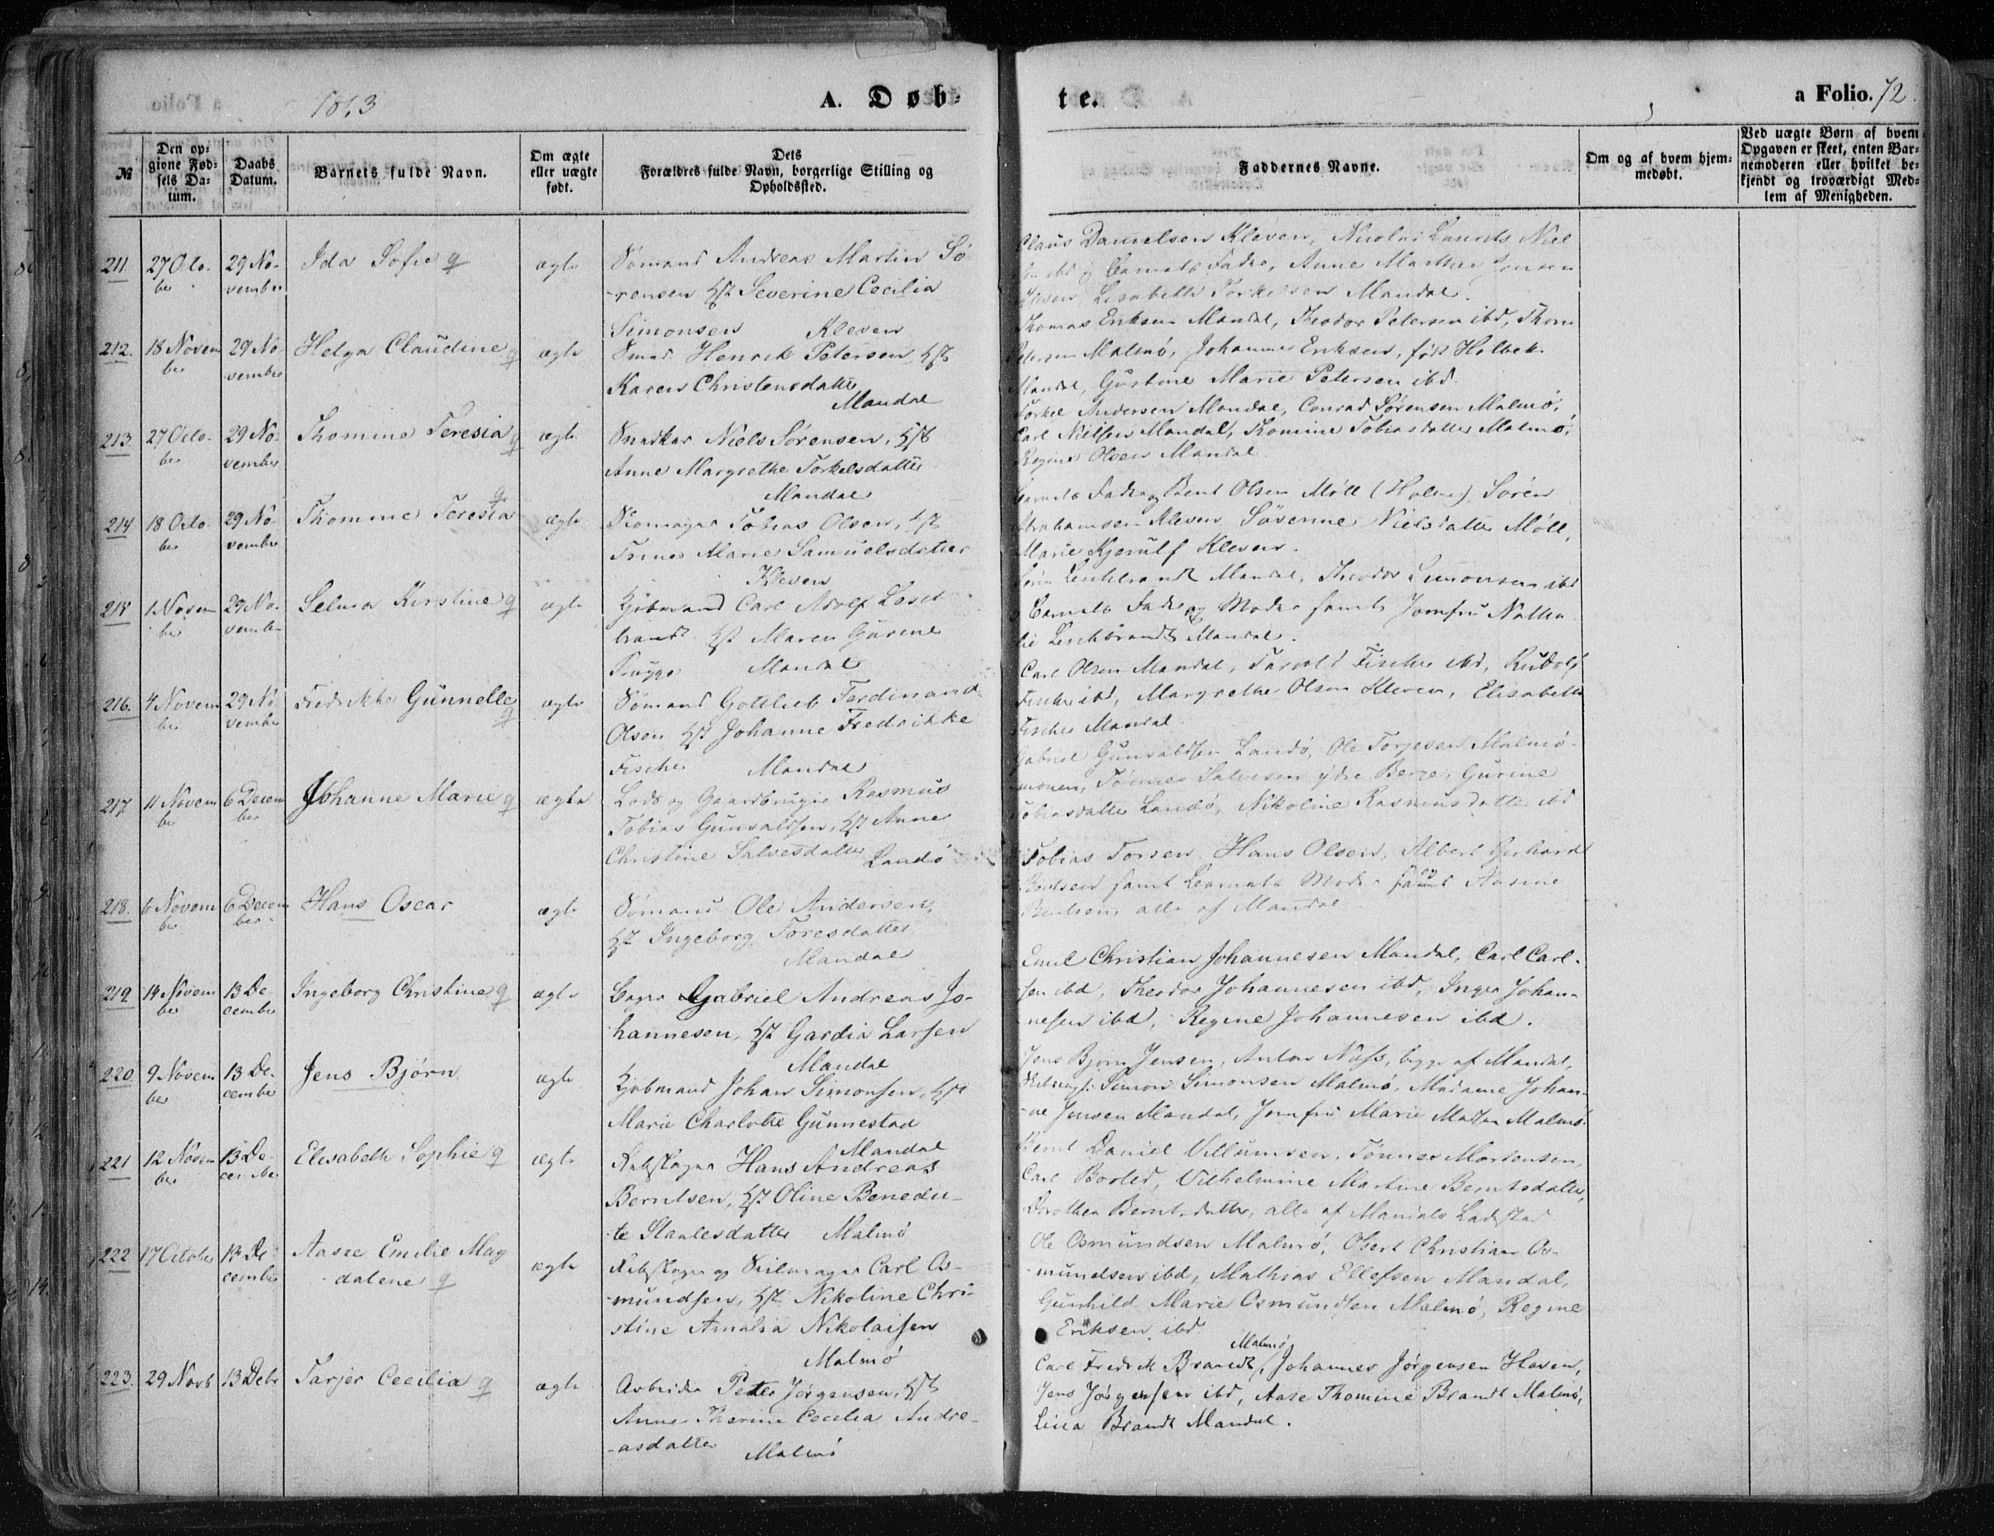 A. Døb-
te.
a Folio. 72.
№
Den op-
givne Fød-
sels Da-
tum.
Daabs
Datum.
Barnets fulde Navn.
Om ægte
eller uægte
født.
Dets
Forældres fulde Navn, borgerlige Stilling og
Opholdssted.
Faddernes Navne.
Om og af hvem hjem-
medøbt.
Ved uægte Børn af hvem
Opgaven er skeet, enten Bar-
nemoderen eller hvilket be-
kjendt og troværdigt Med-
lem af Menigheden.
211. 27 Octo-
ber
29 No-
vember
Ida Sofie
ægte
Sømand Andreas Martin Sø
rensen Severine Cecilia
Simonsen Kleven
Claus Danielsen Kleven, Nicolai Laurits Niel
ibd og Barnets Fader, Anne Marthe Jensen
Kleven Lisabeth Torkelsen Mandal.
212. 18 Novem
ber
29 No-
vember
Helga Claudine
ægte
Henrik Petersen,
Karen Christensdatter
Mandal
Thomas Eriksen Mandal, Theodor Petersen ibd, Thom
Petersen Malmø, Johanne Eriksen, født Holbek
Mandal, Gustine Marie Petersen ibd.
213. 27 Octo-
ber
29 No-
vember
Thomine Teresia
ægte
Snedker Niels Sørensen,
Anne Margrethe Torkelsdatter
Mandal
Torkel Andersen Mandal, Conrad Sørensen Malmø,
Carl Nielsen Mandal, Thomine Tobiasdatter Malmø,
Regine Olsen Mandal
214 18 Octo-
ber
29 No-
vember
Thomine Teresia
ægte
Skomager Tobias Olsen,
Trine Marie Samuelsdatter
Kleven
Barnets Fader og Bent Olsen Møll (Holum), Søren
Abrahamsen Kleven, Søverine Nielsdatter Møll,
Marie Kjerulf Kleven.
215 1 Novem
ber
29 No-
vember
Selma Kirstine
ægte
Kjøbmand Carl Adolf
brandt Maren Gurine
Mandal
Mandal, Theodor Simonsen ibd
Barnets Fader og Moder samt Jomfru
Mandal.
216. 4 Novem
ber
29 No-
vember
Fredrikke Gunnelle
ægte
Sømand Gottlieb Ferdinand
Olsen Johanne Fredrikke
Fischer Mandal
Carl Olsen Mandal, Fischer ibd, Rudolf
Fischer ibd, Margrethe Olsen Kleven, Elisabeth
Fischer Mandal
217. 11 Novem
ber
6 Decem
ber
Johanne Marie
ægte
Lods og Gaardbruger Rasmus
Tobias Gunvaldsen, Anne
Christine Salvesdatter Landø
Gabriel Gunvaldsen Landø, Ole Torjesen Malmø-
Tønnes Salvesen ydre Berge, Gurine
Tobiasdatter Landø, Nikoline Rasmusdatter ibd
218. 6 Novem
ber
6 Decem
ber
Hans Oscar
ægte
Sømand Ole Andersen,
Ingeborg Toresdatter
Mandal
Tobias Hans Olsen, Albert Gerhard
Berntsen samt Barnets Moder Aasine
Berntsen, alle af Mandal
219. 14 Novem
ber
13 De-
cember
Ingeborg Christine
ægte
Bager Gabriel Andreas Jo-
hannesen, Gardia Larsen
Mandal
Emil Christian Johannesen Mandal, Carl Carl-
sen ibd, Theodor Johannesen ibd, Inger Johan-
nesen ibd, Regine Johannesen ibd.
220 9 Novem
ber
13 De-
cember
Jens Bjørn
ægte
Kjøbmand Johan Simonsen,
Marie Charlotte Gunnestad
Mandal
Jens Bjørn Jensen, Anton Næss, begge af Mandal,
Simon Simonsen Malmø, Madame Johan-
ne Jensen Mandal, Jomfru Marie Malmø.
221 12 Novem
ber
13 De-
cember
Elisabeth Sophie
ægte
Rebslager Hans Andreas
Berntsen, Oline Benedic-
te Staalesdatter Malmø
Bernt Daniel Villumsen, Tønnes Mortensen,
Carl Vilhelmine Martine Berntsdatter,
Dorothea Berntsdatter, alle af Mandals Ladested
222 17 October
13 De-
cember
Aasze Emilie Mag
dalene
ægte
Rebslager og Seilmager Carl Os-
mundsen, Nikoline Chri-
stine Amalia Nikolaisen
Malmø
Ole Osmundsen Malmø, Obert Christian Os-
mundsen ibd, Mathias Ellefsen Mandal,
Gunhild Marie Osmundsen Malmø, Regine
Eriksen ibd
223. 29 Novb
13 Debr
Tarjer Cecilia
ægte
Arbeider Peter Jørgensen,
Anne Cecilia Andre-
asdatter
Malmø
Carl Fredrik Brandt Malmø, Johannes Jørgensen Haven,
Jens Jørgensen ibd, Aase Thomine Brandt Malmø,
Lina Brandt Mandal.